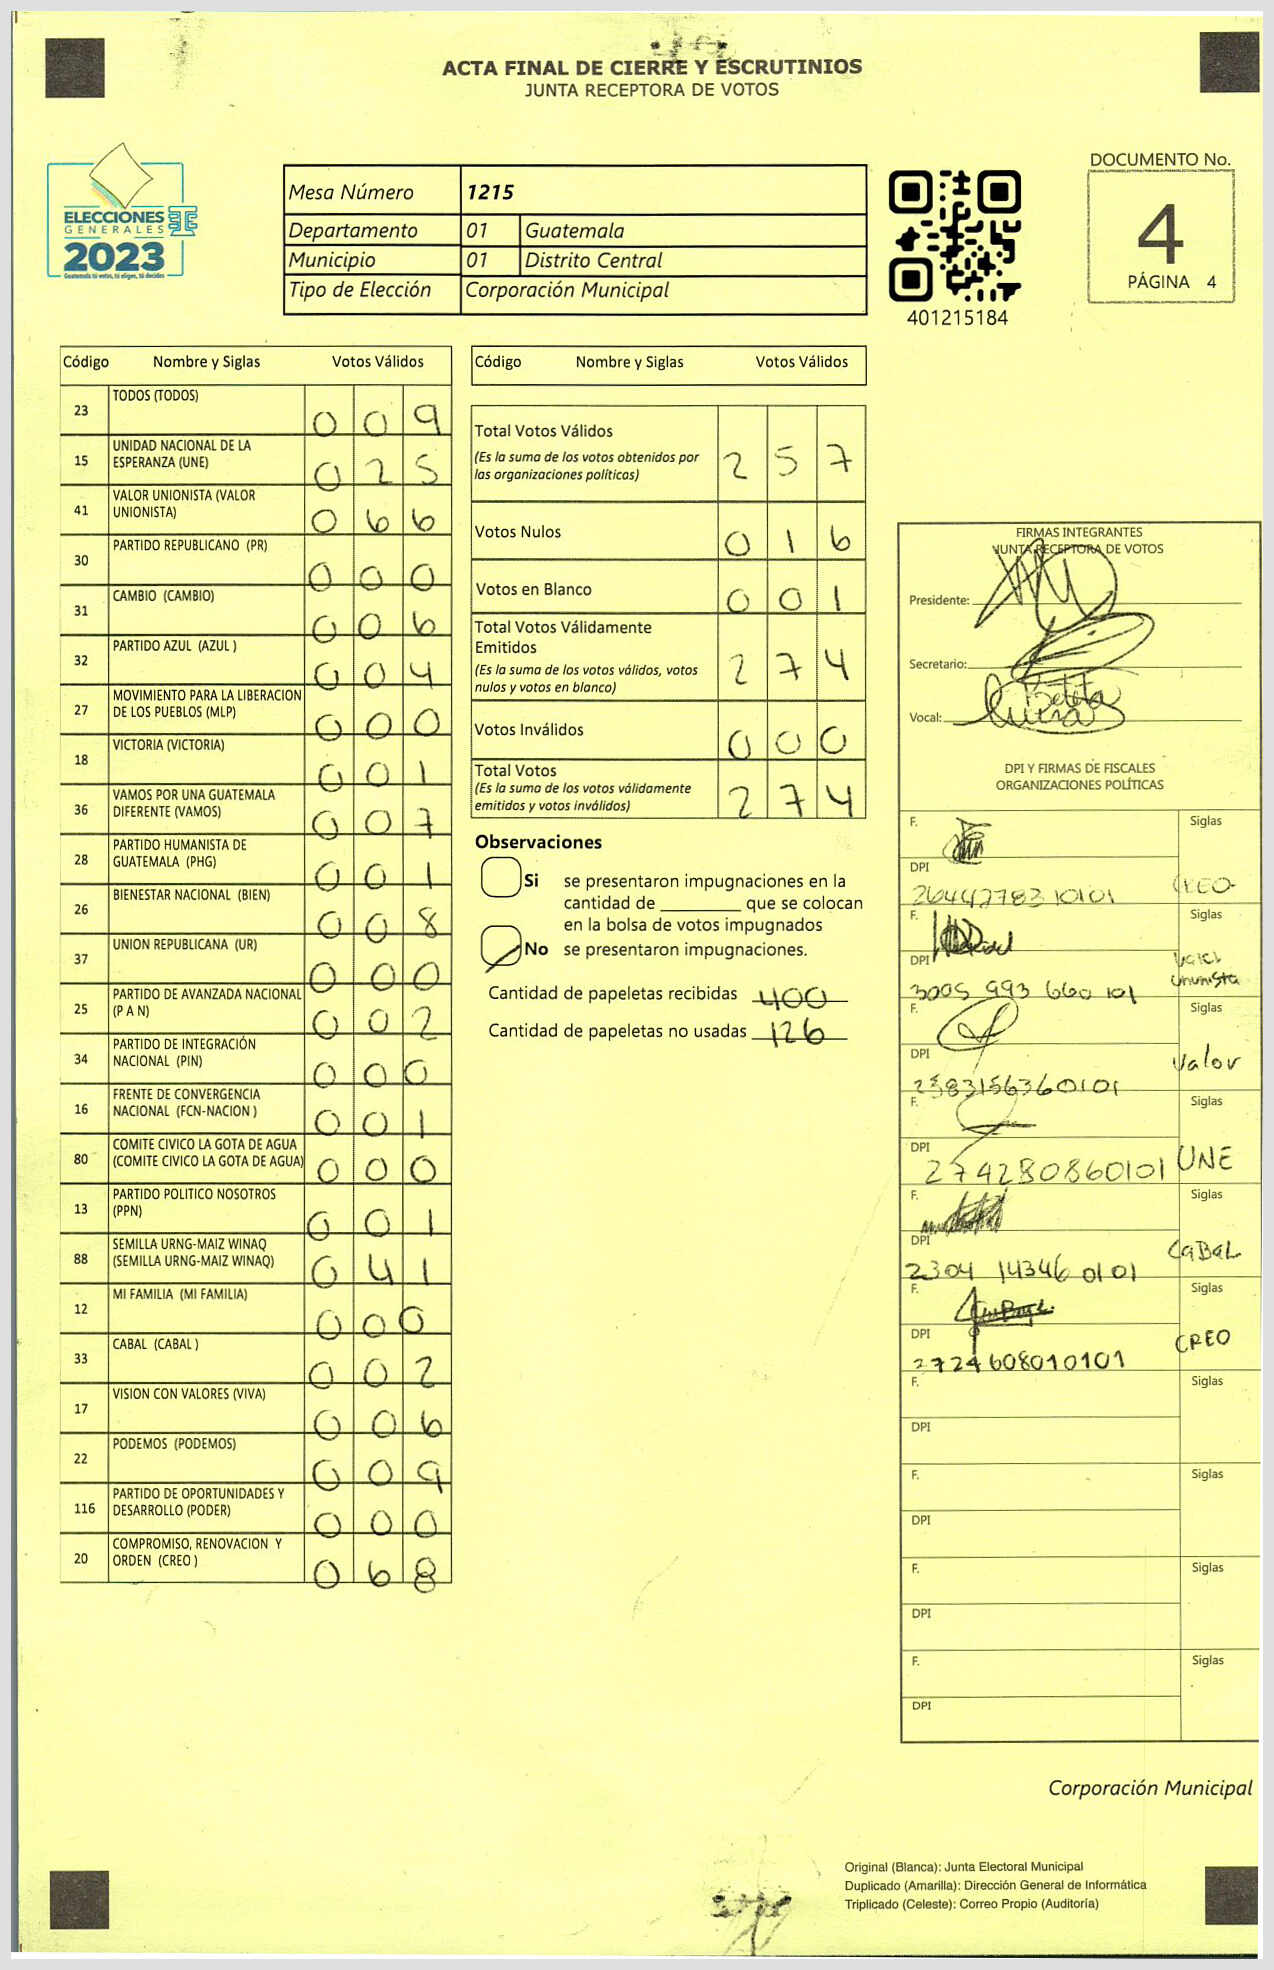 ACTA FINAL DE CIERRE Y ESCRUTINIOS
JUNTA RECEPTORA DE VOTOS
ELECCIONES
GENERALES
2023
Guatemala tú votas, tú eliges, tú decides
Mesa Número 1215
Departamento 01 Guatemala
Municipio 01 Distrito Central
Tipo de Elección Corporación Municipal
401215184
DOCUMENTO No.
4
PÁGINA 4
Código Nombre y Siglas Votos Válidos
23 TODOS (TODOS) 0 0 9
15 UNIDAD NACIONAL DE LA
ESPERANZA (UNE) 0 2 5
41 VALOR UNIONISTA (VALOR
UNIONISTA) 0 6 6
30 PARTIDO REPUBLICANO (PR) 0 0 0
31 CAMBIO (CAMBIO) 0 0 6
32 PARTIDO AZUL (AZUL ) 0 0 4
27 MOVIMIENTO PARA LA LIBERACION
DE LOS PUEBLOS (MLP) 0 0 0
18 VICTORIA (VICTORIA) 0 0 1
36 VAMOS POR UNA GUATEMALA
DIFERENTE (VAMOS) 0 0 7
28 PARTIDO HUMANISTA DE
GUATEMALA (PHG) 0 0 1
26 BIENESTAR NACIONAL (BIEN) 0 0 8
37 UNION REPUBLICANA (UR) 0 0 0
25 PARTIDO DE AVANZADA NACIONAL
(P A N) 0 0 2
34 PARTIDO DE INTEGRACIÓN
NACIONAL (PIN) 0 0 0
16 FRENTE DE CONVERGENCIA
NACIONAL (FCN-NACION ) 0 0 1
80 COMITE CIVICO LA GOTA DE AGUA
(COMITE CIVICO LA GOTA DE AGUA) 0 0 0
13 PARTIDO POLITICO NOSOTROS
(PPN) 0 0 1
88 SEMILLA URNG-MAIZ WINAQ
(SEMILLA URNG-MAIZ WINAQ) 0 4 1
12 MI FAMILIA (MI FAMILIA) 0 0 0
33 CABAL (CABAL ) 0 0 2
17 VISION CON VALORES (VIVA) 0 0 6
22 PODEMOS (PODEMOS) 0 0 9
116 PARTIDO DE OPORTUNIDADES Y
DESARROLLO (PODER) 0 0 0
20 COMPROMISO, RENOVACION Y
ORDEN (CREO ) 0 6 8
Código Nombre y Siglas Votos Válidos
Total Votos Válidos 2 5 7
(Es la suma de los votos obtenidos por
las organizaciones políticas)
Votos Nulos 0 1 6
Votos en Blanco 0 0 1
Total Votos Válidamente
Emitidos 2 7 4
(Es la suma de los votos válidos, votos
nulos y votos en blanco)
Votos Inválidos 0 0 0
Total Votos 2 7 4
(Es la suma de los votos válidamente
emitidos y votos inválidos)
Observaciones
Si se presentaron impugnaciones en la
cantidad de ________ que se colocan
en la bolsa de votos impugnados
No se presentaron impugnaciones.
Cantidad de papeletas recibidas 400
Cantidad de papeletas no usadas 126
FIRMAS INTEGRANTES
JUNTA RECEPTORA DE VOTOS
Presidente:
Secretario:
Vocal:
DPI Y FIRMAS DE FISCALES
ORGANIZACIONES POLÍTICAS
F. Siglas
DPI
2644277831 0101 CREO
F. Siglas
DPI
3005 993 660 101
F. Siglas
DPI
2583156360101 Valor
F. Siglas
DPI
274280860101 UNE
F. Siglas
DPI
2304 14346 0101 CABAL
F. Siglas
DPI
2724608010101 CREO
F. Siglas
DPI
F. Siglas
DPI
F. Siglas
DPI
F. Siglas
DPI
Corporación Municipal
Original (Blanca): Junta Electoral Municipal
Duplicado (Amarilla): Dirección General de Informática
Triplicado (Celeste): Correo Propio (Auditoría)